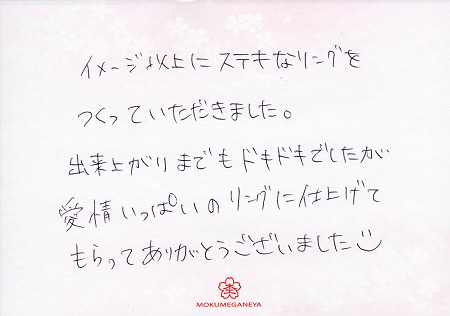 イメージ以上にステキなリングを
つくっていただきました。
出来上がりまでもドキドキでしたが
愛情いっぱいのリングに仕上げて
もらってありがとうございました
MOKUMEGANEYA